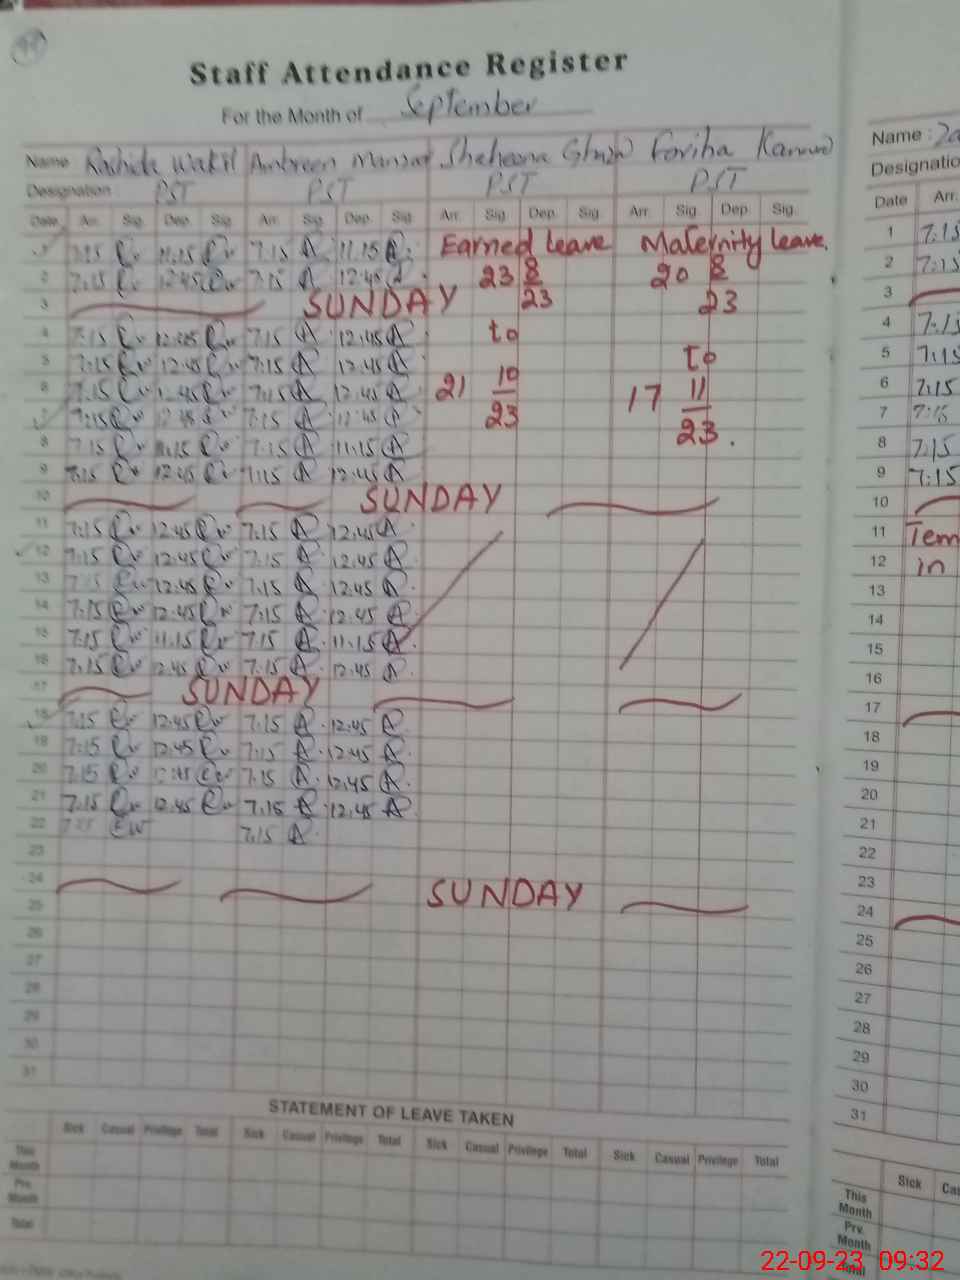 Staff Attendance Register
For the Month of September
Name Rashida Wakil Ambreen Manzar Shaheena
Designation PST PST PST PST
Date Arr. Sig. Dep. Sig. Arr. Sig. Dep. Sig. Arr. Sig. Dep. Sig. Arr. Sig. Dep. Sig.
1 7.15 11.15 7.15 11.15 Earned leave Maternity leave.
2 7.15 12.45 7.15 12.45 23 8/23 20 8/23
3 SUNDAY
4 7.15 12.45 7.15 12.45 to
5 7.15 12.45 7.15 12.45 to
6 7.15 12.45 7.15 12.45 21 10/23 17 11/23.
7 7.15 12.45 7.15 12.45
8 7.15 11.15 7.15 11.15
9 7.15 12.45 7.15 12.45
10 SUNDAY
11 7.15 12.45 7.15 12.45
12 7.15 12.45 7.15 12.45
13 7.15 12.45 7.15 12.45
14 7.15 12.45 7.15 12.45
15 7.15 11.15 7.15 11.15
16 7.15 12.45 7.15 12.45
17 SUNDAY
18 7.15 12.45 7.15 12.45
19 7.15 12.45 7.15 12.45
20 7.15 12.45 7.15 12.45
21 7.15 12.45 7.15 12.45
22 7.15 EW 7.15
23
24 SUNDAY
25
26
27
28
29
30
31
STATEMENT OF LEAVE TAKEN
Sick Casual Privilege Total Sick Casual Privilege Total Sick Casual Privilege Total Sick Casual Privilege Total
This Month
Prv. Month
Total
Name :
Designatio
Date Arr.
1 7.15
2 7.15
3
4 7.15
5 7.15
6 7.15
7 7.15
8 7.15
9 7.15
10
11 Tem
12 in
13
14
15
16
17
18
19
20
21
22
23
24
25
26
27
28
29
30
31
Sick Cas
This Month
Prv. Month
Total
22-09-23 09:32